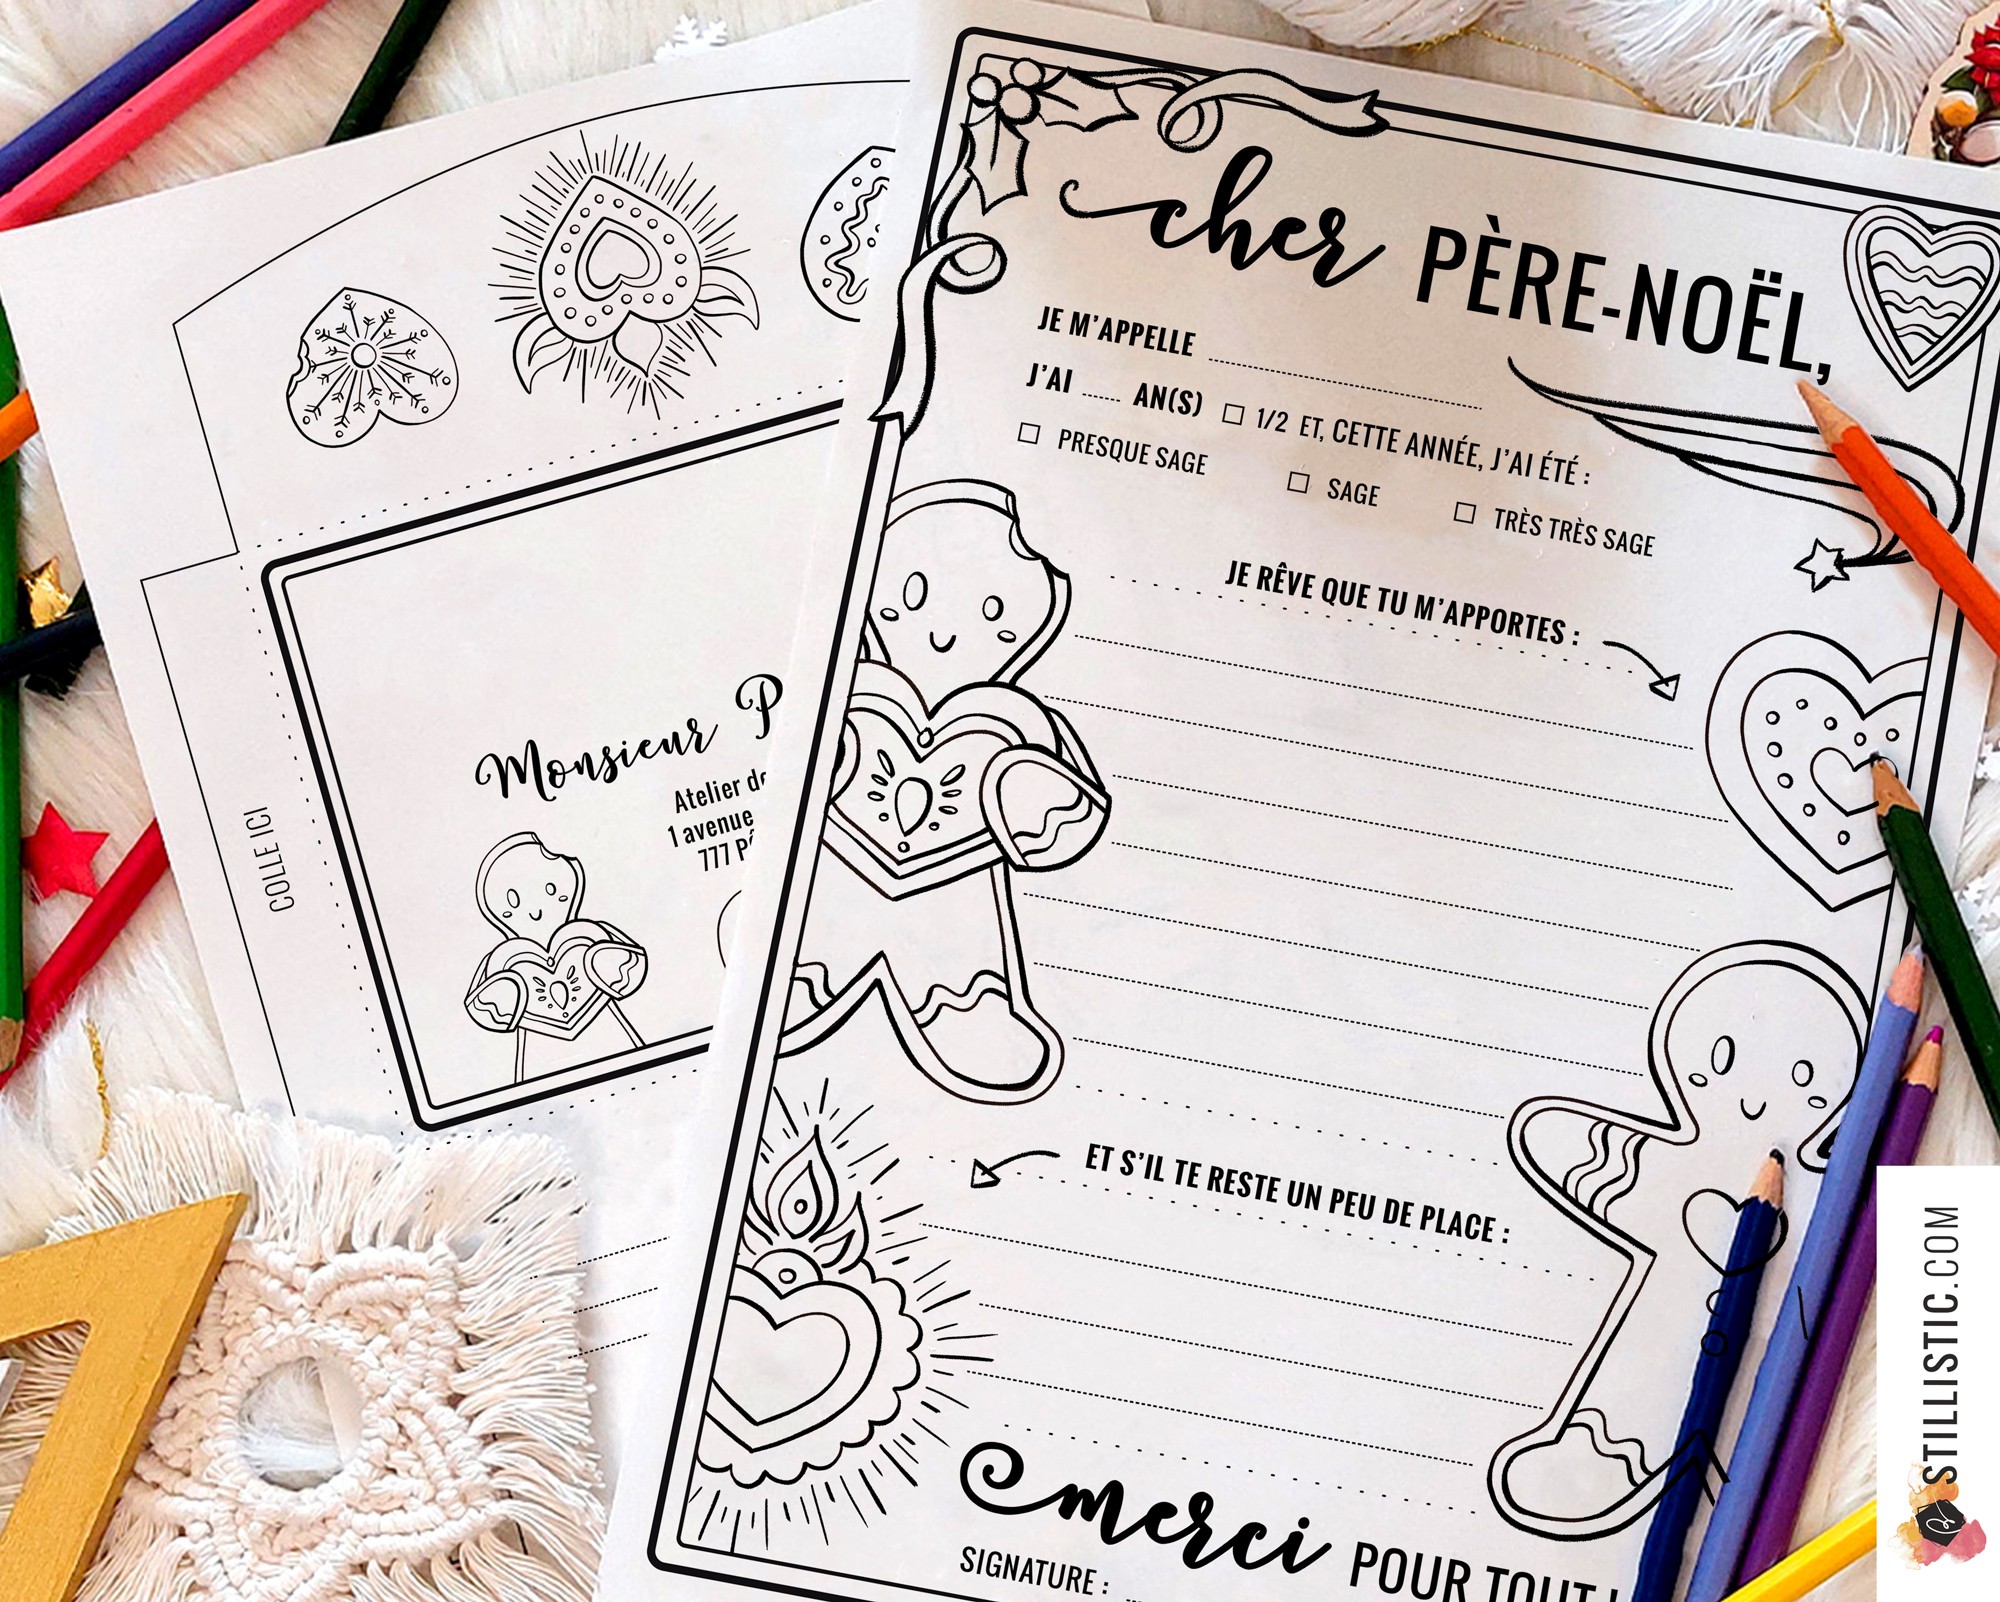 cher PÈRE-NOËL,
JE M'APPELLE
J'AI AN(S) 1/2 ET, CETTE ANNÉE, J'AI ÉTÉ :
PRESQUE SAGE SAGE TRÈS TRÈS SAGE
JE RÊVE QUE TU M'APPORTES :
ET S'IL TE RESTE UN PEU DE PLACE :
merci POUR TOUT !
SIGNATURE :
COLLE ICI
Monsieur P
Atelier de
1 avenue
777
STILLISTIC.COM